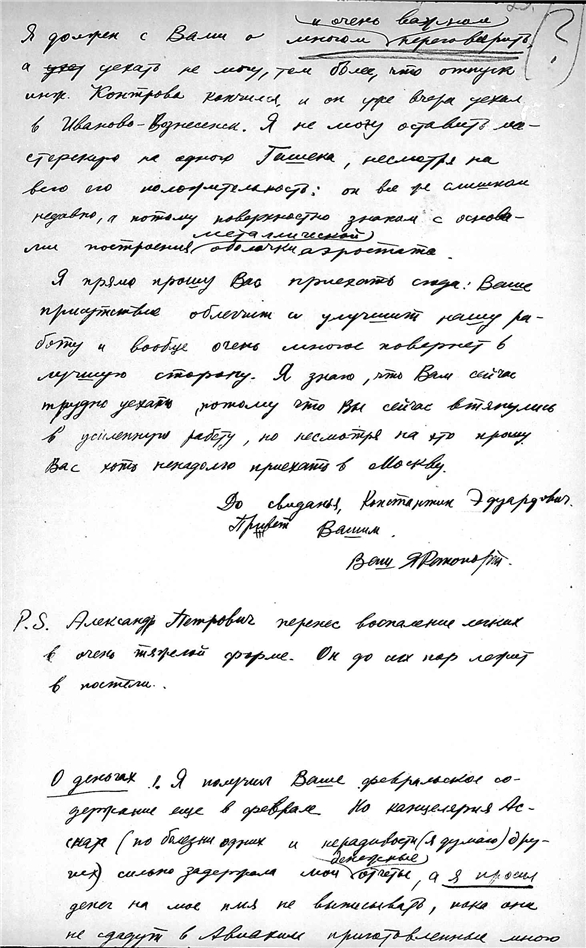 и очень важном
Я должен с Вами о многом переговорить,
а уехать не могу, тем более, что отпуск
инж. Контрова кончился, и он уже вчера уехал
в Иваново-Вознесенск. Я не могу оставить ма-
стерскую на одного Гашека, несмотря на
всю его положительность: он все же слишком
недавно, а потому поверхностно знаком с основа-
металлической
ми построения оболочки аэростата.
Я прямо прошу Вас приехать сюда: Ваше
присутствие облегчит и улучшит нашу ра-
боту и вообще очень многое повернет в
лучшую сторону. Я знаю, что Вам сейчас
трудно уехать, потому что Вы сейчас втянулись
в усиленную работу, но несмотря на это прошу
Вас хоть ненадолго приехать в Москву.
До свиданья, Константин Эдуардович.
Привет Вашим.
Ваш Я Рапопорт.
P.S. Александр Петрович перенес воспаление легких
в очень тяжелой форме. Он до сих пор лежит
в постели.
О деньгах!. Я получил Ваше февральское со-
держание еще в феврале. Но канцелярия Ас-
нар (по болезни одних и нерадивости (я думаю) дру-
денежные
гих) сильно задержала мои отчеты, а я просил
денег на мое имя не выписывать, пока они
не сдадут в Авиахим приготовленные мною